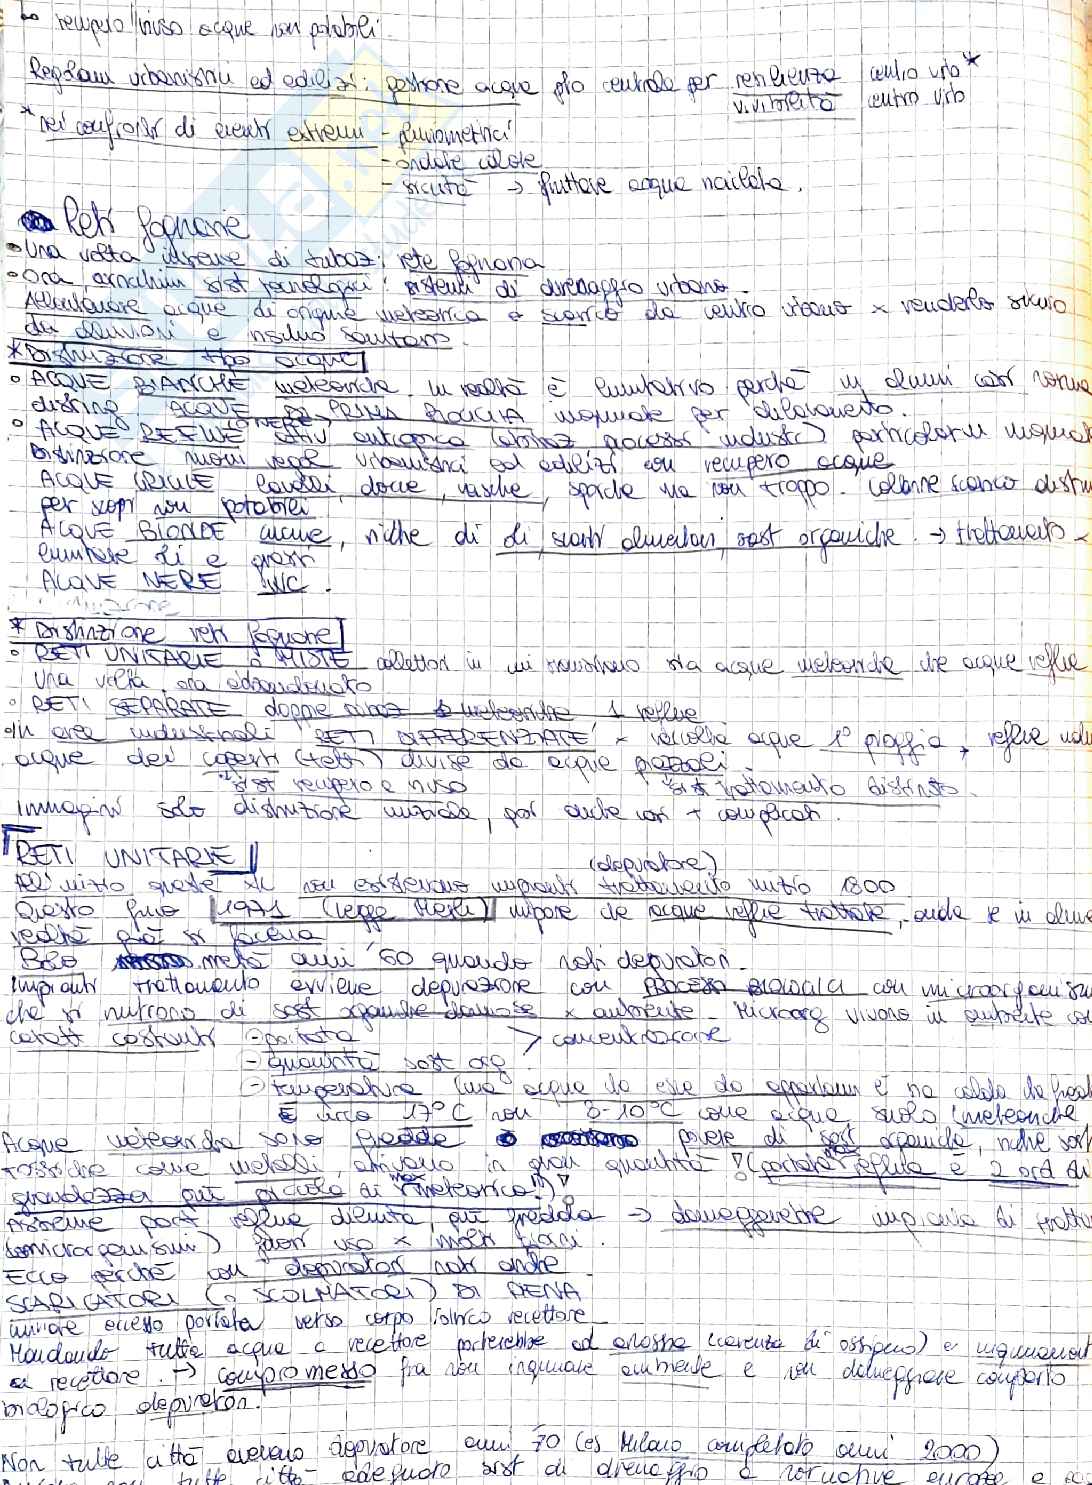 recupero/riuso acque non potabili
Regolam urbanistici ed edilizi: gestione acque più centrale per resilienza centro urb*
vivibilità centro urb
*nei confronti di eventi estremi - pluviometrici
- ondate calore
- siccità → sfruttare acqua riciclata.
Reti fognarie
• Una volta insieme di tubaz: rete fognaria
• Ora, arricchim sist tecnologici: sistemi di drenaggio urbano.
Allontanare acque di origine meteorica e scarico da centro urbano x renderlo sicuro
da alluvioni e rischio sanitario.
* Distinzione tipo acque
• ACQUE BIANCHE meteoriche. In realtà è limitativo perché in alcuni casi norma
disting ACQUE DI PRIMA PIOGGIA inquinate per dilavamento.
• ACQUE REFLUE o NERE attiv antropica (abitaz processi industr) particolarm inquinate
Distinzione nuovi regol urbanistici ed edilizi con recupero acque
ACQUE GRIGIE lavelli, docce, vasche, sporche ma non troppo. Colonne scarico distin
per scopi non potabili
ACQUE BIONDE cucine, ricche di oli, scarti alimentari, sost organiche. → trattamento
limitare oli e grassi
ACQUE NERE WC.
* Distinzione reti fognarie
• RETI UNITARIE o MISTE collettori in cui inseriscono sia acque meteoriche che acque reflue
Una volta, ora abbandonato
• RETI SEPARATE doppie tubaz 1 meteoriche 1 reflue
• In aree industriali RETI DIFFERENZIATE x raccolta acque 1° pioggia, reflue indu
acque dei coperti (tetti) divise da acque piazzali.
sist recupero e riuso sist trattamento distinto.
Immagini solo distinzione iniziale, poi anche casi + complicati.
RETI UNITARIE
(depuratore)
All'inizio queste xk non esistevano impianti trattamento inizio 1800
Questo fino 1971 (legge Merli) impone che acque reflue trattate, anche se in alcune
realtà già si faceva
metà anni '60 quando nati depuratori.
Impianti trattamento avviene depurazione con PROCESSI BIOLOGICI con microorganismi
che si nutrono di sost organiche dannose x ambiente. Microorg vivono in ambiente con
caratt costanti - portata > concentrazione
- quantità sost org
- temperatura (ma acqua che esce da appartam è na calda che fredda
È circa 17°C non 8-10°C come acqua suolo (meteoriche
Acque meteoriche sono fredde povere di sost organiche, ricche sost
tossiche come metalli, arrivano in gran quantità !! (portata reflua è 2 ord di
grandezza più piccola di meteorica!!)
Assieme port reflua diluita, più fredda → danneggerebbe impianto di trattam
(microorganismi) fuori uso x molti giorni.
Ecco perché con depuratori nati anche
SCARICATORI (o SCOLMATORI) DI PIENA
inviare eccesso portata verso corpo idrico recettore
Mandando tutta acqua a recettore porterebbe ad anossia (carenza di ossigeno) e inquinament
recettore. → compromesso fra non inquinare ambiente e non danneggiare comparto
biologico depuratori.
Non tutte città avevano depuratore anni 70 (es Milano completato anni 2000)
tutte città adeguato sist di drenaggio a normative europee e